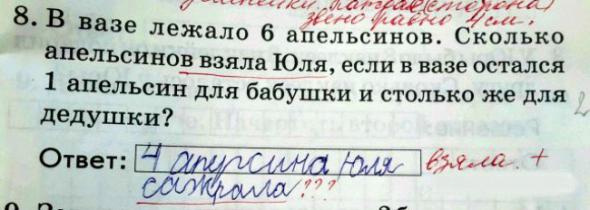 сторона
звено равно 4см.
8. В вазе лежало 6 апельсинов. Сколько
апельсинов взяла Юля, если в вазе остался
1 апельсин для бабушки и столько же для
дедушки?
Ответ: 4 апурсина Юля взяла. +
сажрала ???